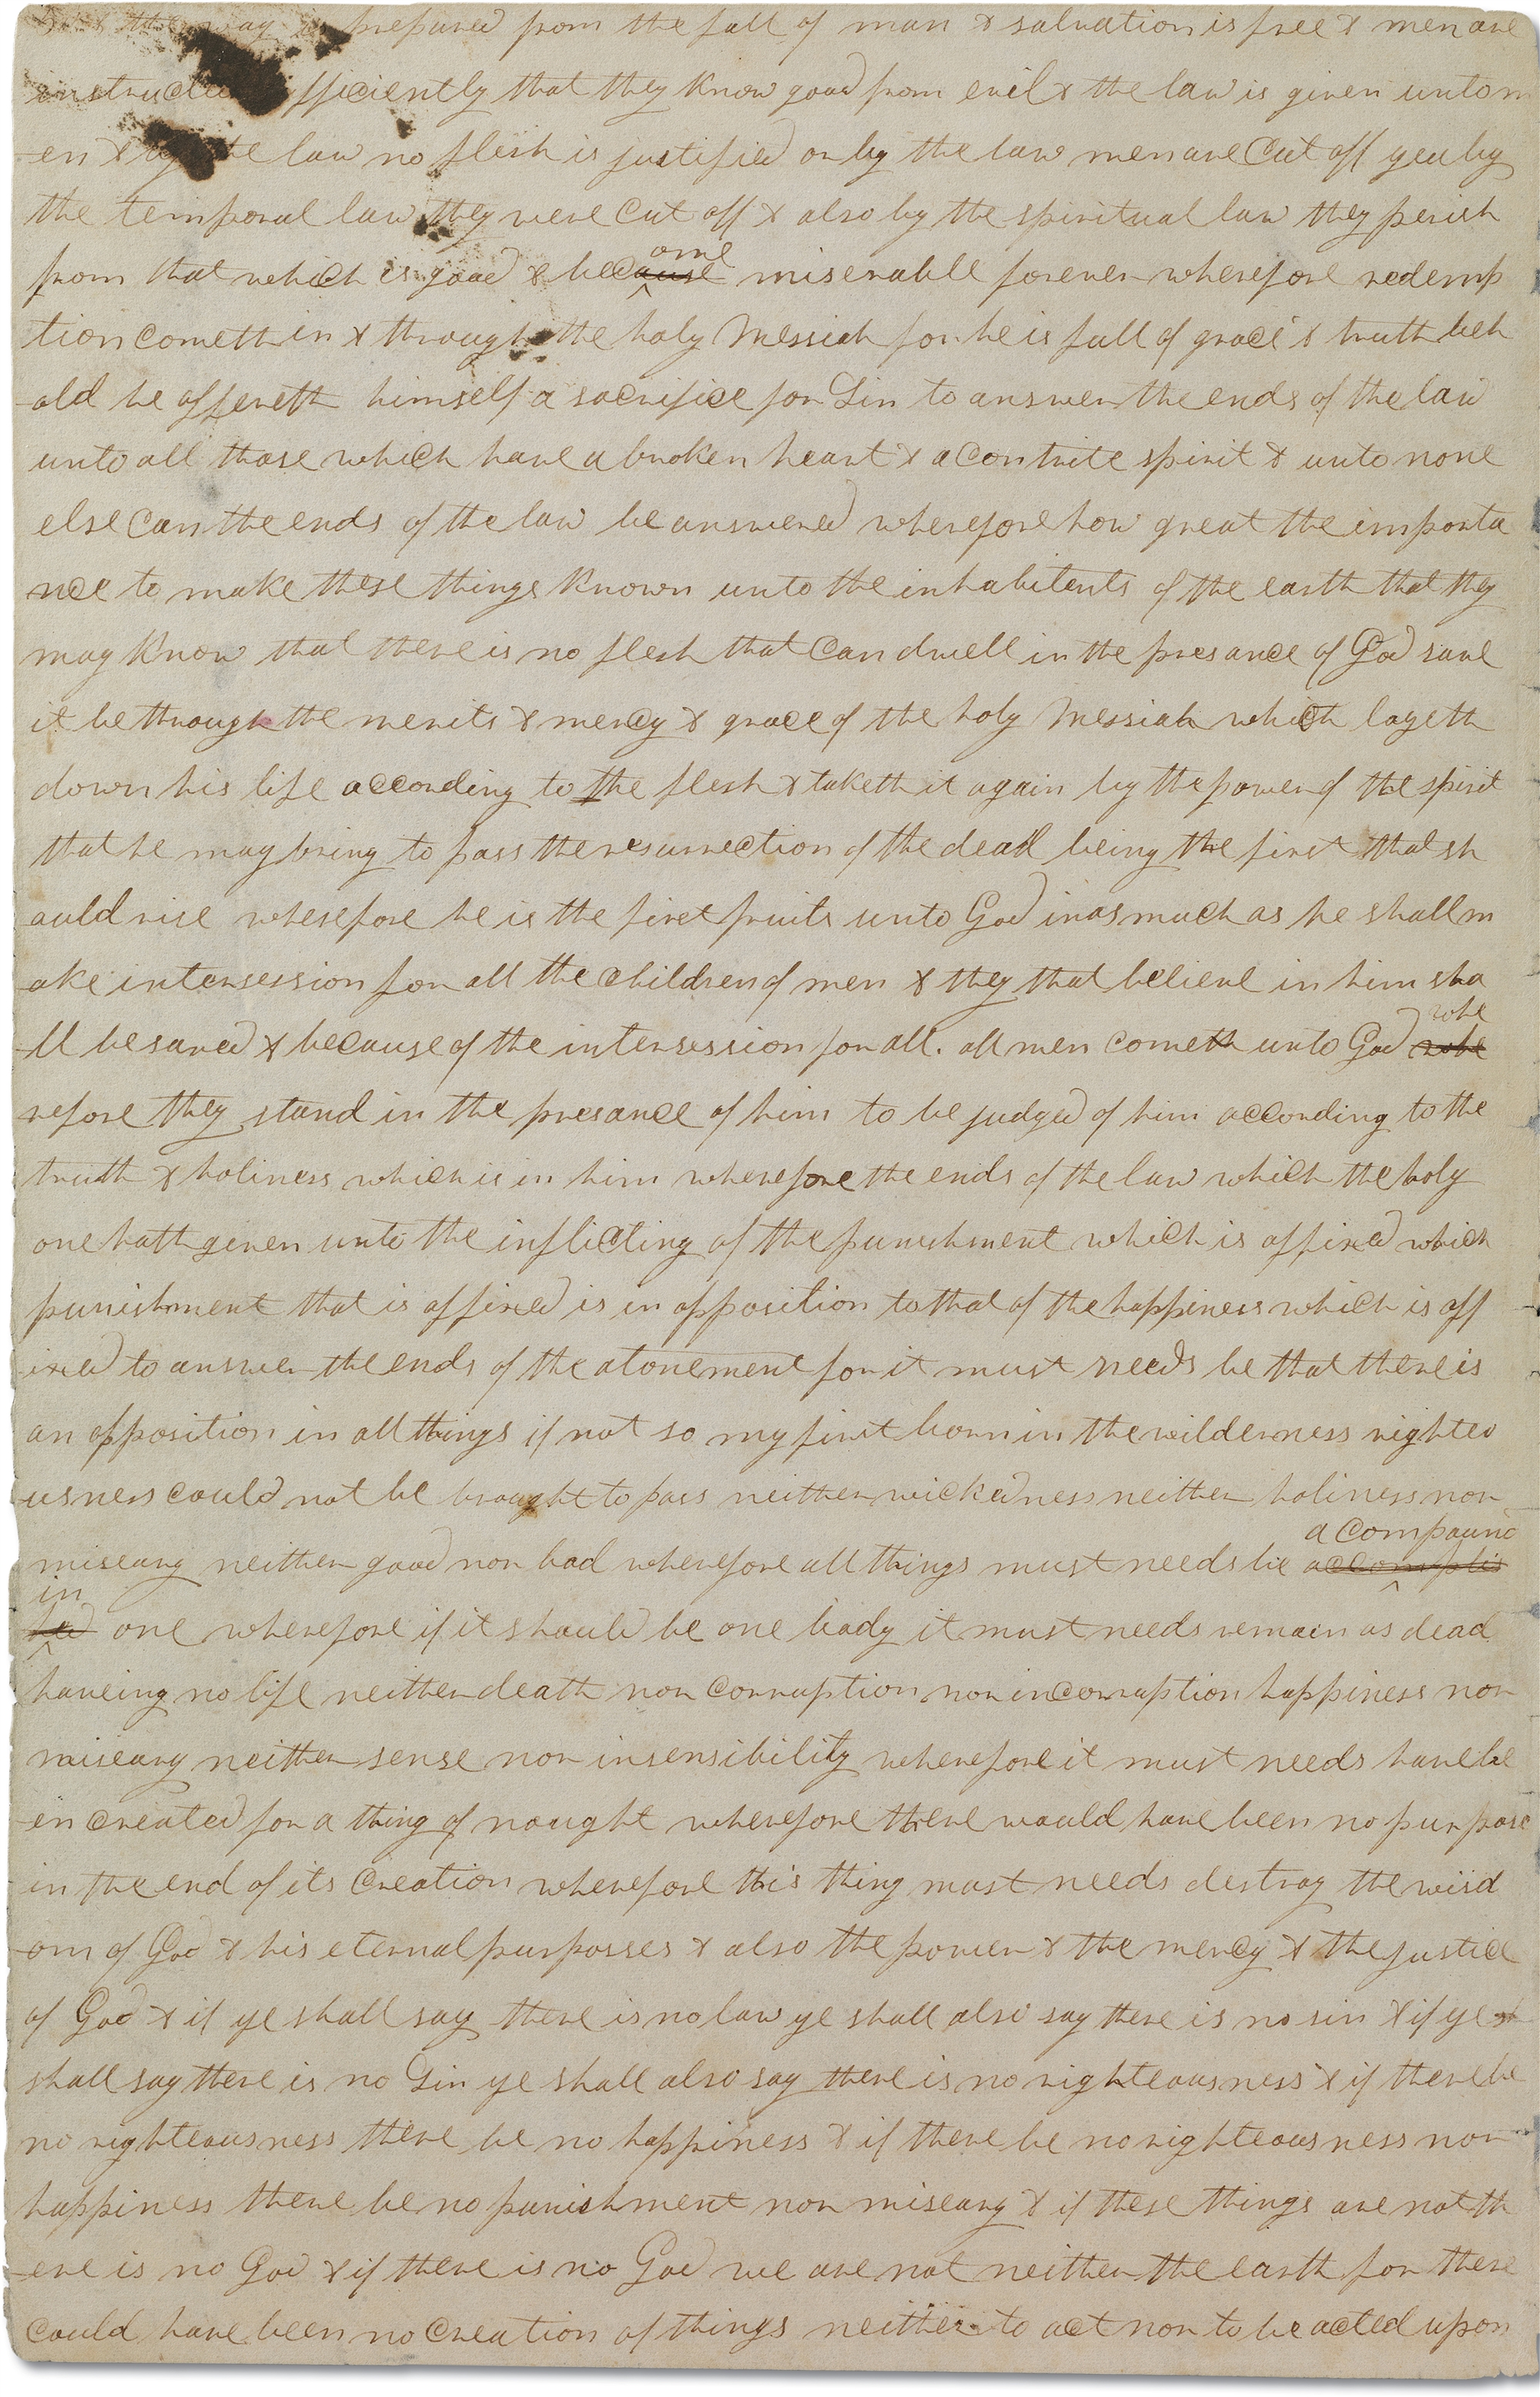 the way is prepared from the fall of man & salvation is free & men are
instructed fficiently that they know good from evil & the law is given unto m
en & by the law no flesh is justified or by the law men are Cut off yea by
the temporal law they were Cut off & also by the spiritual law they perish
ome
from that which is good & because miserable forever wherefore redemp
tion Cometh in & through the holy Messiah for he is full of grace & truth beh
old he offereth himself a sacrifice for Sin to answer the ends of the law
unto all those which have a broken heart & a Contrite spirit & unto none
else Can the ends of the law be answered wherefore how great the importa
nce to make these things known unto the inhabitents of the earth that they
may know that there is no flesh that Can dwell in the presance of God save
it be through the merits & mercy & grace of the holy Messiah which layeth
down his life according to the flesh & taketh it again by the power of the spirit
that he may bring to pass the resurrection of the dead being the first that sh
ould rise wherefore he is the first fruits unto God inasmuch as he shall m
ake intersession for all the Children of men & they that believe in him sha
whe
ll be saved & because of the intersession for all. all men cometh unto God whe
refore they stand in the presance of him to be judged of him according to the
truth & holiness which is in him wherefore the ends of the law which the holy
one hath given unto the inflicting of the punishment which is affixed which
punishment that is affixed is in opposition to that of the happiness which is aff
ixed to answer the ends of the atonement for it must needs be that there is
an opposition in all things if not so my first born in the wilderness righteo
usness could not be brought to pass neither wickedness neither holiness nor
a Compound
miseary neither good nor bad wherefore all things must needs be accomplis
in
hed one wherefore if it should be one body it must needs remain as dead
haveing no life neither death nor Corruption nor inCorruption happiness nor
miseary neither sense nor insensibility wherefore it must needs have be
en Created for a thing of nought wherefore there would have been no purpose
in the end of its Creation wherefore this thing must needs destroy the wisd
om of God & his eternal purposses & also the power & the mercy & the justice
of God & if ye shall say there is no law ye shall also say there is no sin & if ye sh
shall say there is no Sin ye shall also say there is no righteousness & if there be
no righteousness there be no happiness & if there be no righteousness nor
happiness there be no punishment nor miseary & if these things are not th
ere is no God & if there is no God we are not neither the earth for there
Could have been no Creation of things neither to act nor to be acted upon